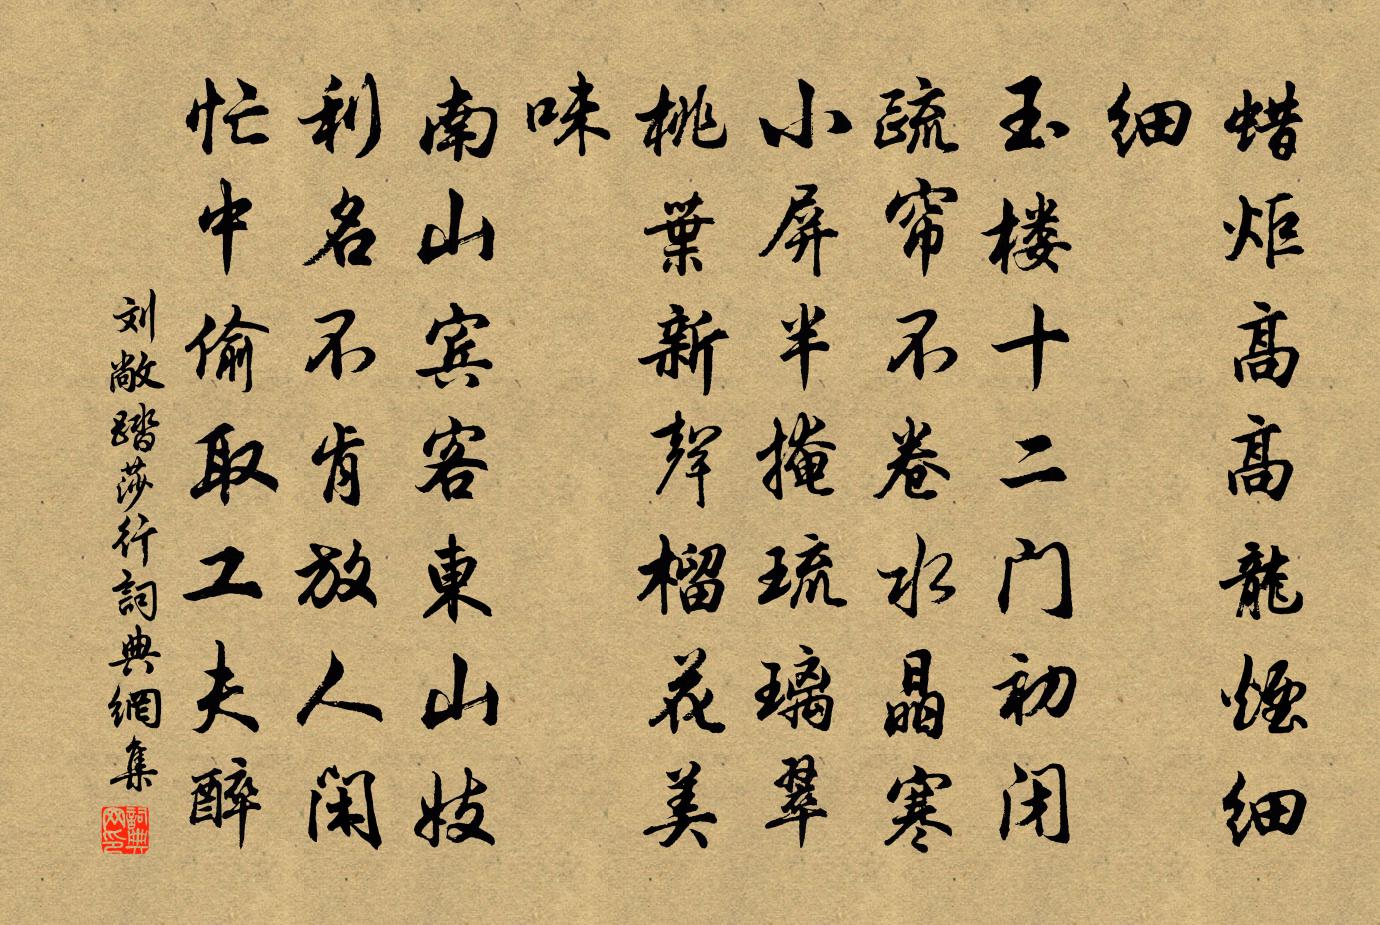 蜡炬高高龍煙细
细
玉楼十二门初闭
疏帘不卷水晶寒
小屏半掩琉璃翠
桃葉新聲榴花美
味
南山宾客東山妓
利名不肯放人闲
忙中偷取工夫醉
刘敞踏莎行詞典網集
詞典网印